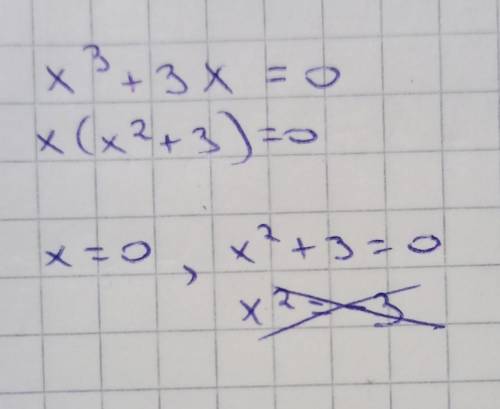 x³ + 3x = 0
x(x² + 3) = 0
x = 0 , x² + 3 = 0
x² = -3